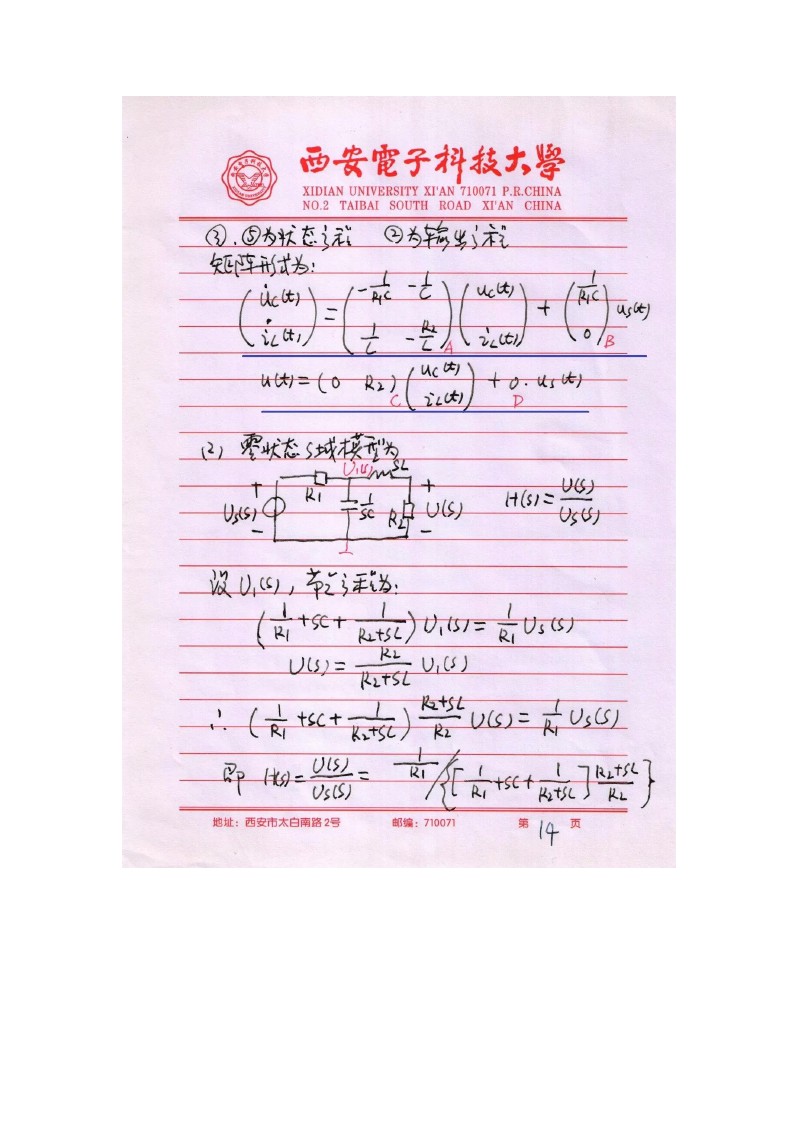 西安電子科技大學
XIDIAN UNIVERSITY XI'AN 710071 P.R.CHINA
NO.2 TAIBAI SOUTH ROAD XI'AN CHINA
③、⑤为状态方程 ②为输出方程
矩阵形式为:
(u̇c(t) ; i̇L(t)) = (-1/(R1C) -1/C ; 1/L -R2/L) A (uc(t) ; iL(t)) + (1/(R1C) ; 0) B us(t)
u(t) = (0 R2) C (uc(t) ; iL(t)) + 0·us(t) D
(2) 零状态S域模型为
U1(s) SL
+ R1 + 
Us(s) 1/SC R2 U(s) H(s) = U(s)/Us(s)
- -
设U1(s), 节点方程为:
(1/R1 + SC + 1/(R2+SL)) U1(s) = 1/R1 Us(s)
U(s) = R2/(R2+SL) U1(s)
∴ (1/R1 + SC + 1/(R2+SL)) (R2+SL)/R2 U(s) = 1/R1 Us(s)
即 H(s) = U(s)/Us(s) = 1/R1 / {[1/R1 + SC + 1/(R2+SL)] (R2+SL)/R2}
地址: 西安市太白南路2号 邮编: 710071 第 14 页